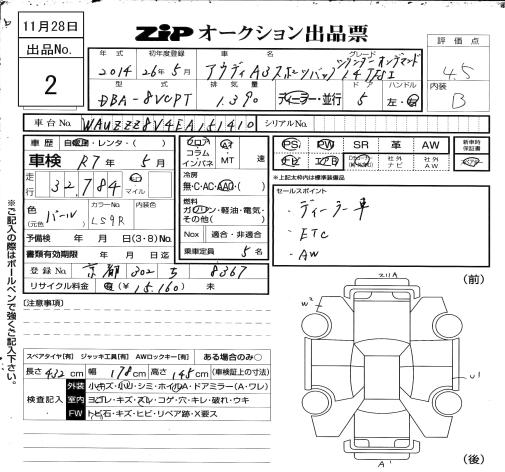 11月28日
ZIP オークション出品票
出品No.
2
評価点
4.5
内装
B
年式 初年度登録 車名 グレード
2014 26年5月 アウディA3スポーツバック 1.4 TFSI シリンダーオンデマンド
型式 排気量 ドア ハンドル
DBA-8VCPT 1.390 ディーラー・並行 5 左・右
車台No. WAUZZZ8V4EA151410 シリアルNo.
車歴 自家用・レンタ・( )
車検 R7年 5月
走行 32,784 km マイル
色(元色) パール カラーNo. LS9R 内装色
予備検 年 月 日(3・8)No.
書類有効期限 年 月 日迄
登録No. 京都 302 ち 8367
リサイクル料金 有(¥15,160) 未
フロア コラム インパネ AT・MT 速
冷房 無・C・AC・AAC・( )
燃料 ガソリン・軽油・電気・その他( )
Nox 適合・非適合
乗車定員 5名
PS PW SR 革 AW 新車時保証書
社外ナビ 社外AV
※上記太枠は標準装備品
セールスポイント
・ディーラー車
・ETC
・AW
※ご記入の際はボールペンで強くご記入下さい。
[注意事項]
スペアタイヤ[有] ジャッキ工具[有] AWロックキー[有] ある場合のみ○
長さ 432cm 幅 178cm 高さ 145cm (車検証上の寸法)
検査記入
外装 小キズ・小凹・シミ・ホイルA・ドアミラー(A・ワレ)
室内 ヨゴレ・キズ・スレ・コゲ・穴・キレ・破れ・ウキ
FW トビ石・キズ・ヒビ・リペア跡・X要ス
(前)
W2
U1
A1
(後)